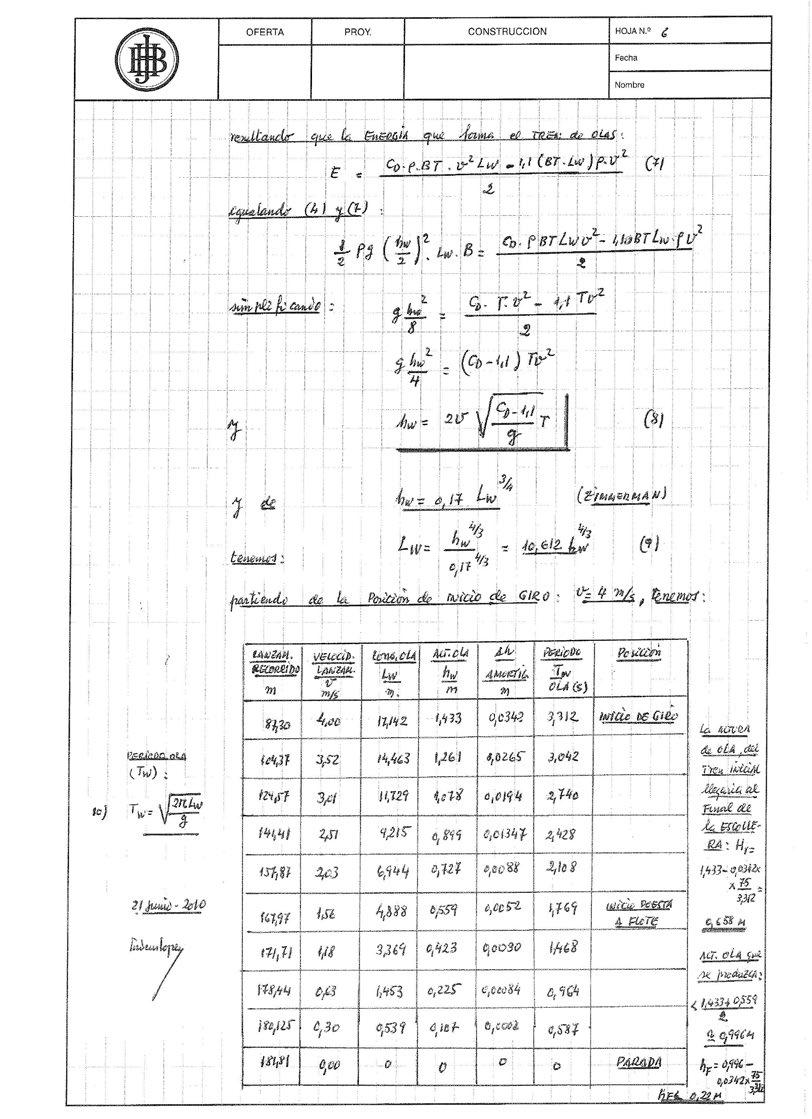 OFERTA PROY. CONSTRUCCION HOJA N.º 6
Fecha
Nombre
resultando que la ENERGÍA que forma el TREN de OLAS:
E = (C_D·ρ·BT·v² Lw - 1,1 (BT·Lw) ρ·v²) / 2 (7)
igualando (4) y (7):
1/2 ρg (hw/2)²· Lw·B = (C_D·ρBTLwv² - 1,1·BTLw·ρv²) / 2
simplificando:
g hw²/8 = (C_D·T·v² - 1,1 Tv²) / 2
g hw²/4 = (C_D-1,1) Tv²
y hw = 2v √((C_D-1,1)/g T) (8)
y de hw = 0,17 Lw^3/4 (ZIMMERMAN)
tenemos: Lw = hw^4/3 / 0,17^4/3 = 10,612 hw^4/3 (9)
partiendo de la Posición de inicio de GIRO: v=4 m/s, tenemos:
LANZAM. RECORRIDO m | VELOCID. LANZAM. v m/s | LONG. OLA Lw m. | ALT. OLA hw m | Δh AMORTIG. m | PERIODO Tw OLA (s) | Posición
87,30 4,00 17,142 1,433 0,0342 3,312 INICIO DE GIRO
104,37 3,52 14,463 1,261 0,0265 3,042
124,57 3,01 11,729 1,078 0,0194 2,740
141,41 2,51 9,215 0,899 0,01347 2,428
157,87 2,03 6,944 0,727 0,0088 2,108
167,97 1,56 4,888 0,559 0,0052 1,769 INICIO PUESTA A FLOTE
171,71 1,18 3,369 0,423 0,0030 1,468
178,44 0,63 1,453 0,225 0,00084 0,964
180,125 0,30 0,539 0,107 0,0002 0,587
181,81 0,00 0 0 0 0 PARADA
PERÍODO OLA
(Tw):
10) Tw = √(2πLw/g)
21 Junio-2010
LA ALTURA
de OLA, del
Tren inicial
llegaría al
Final de
la ESCOLLE-
RA: Hr=
1,433-0,0342x
x 75/3,312 =
0,658 M
ALT. OLA que
se produzca:
< (1,433+0,559)/2
≃ 0,996 M
hF = 0,996-
0,0342x 75/3,312
hF≤ 0,22 M